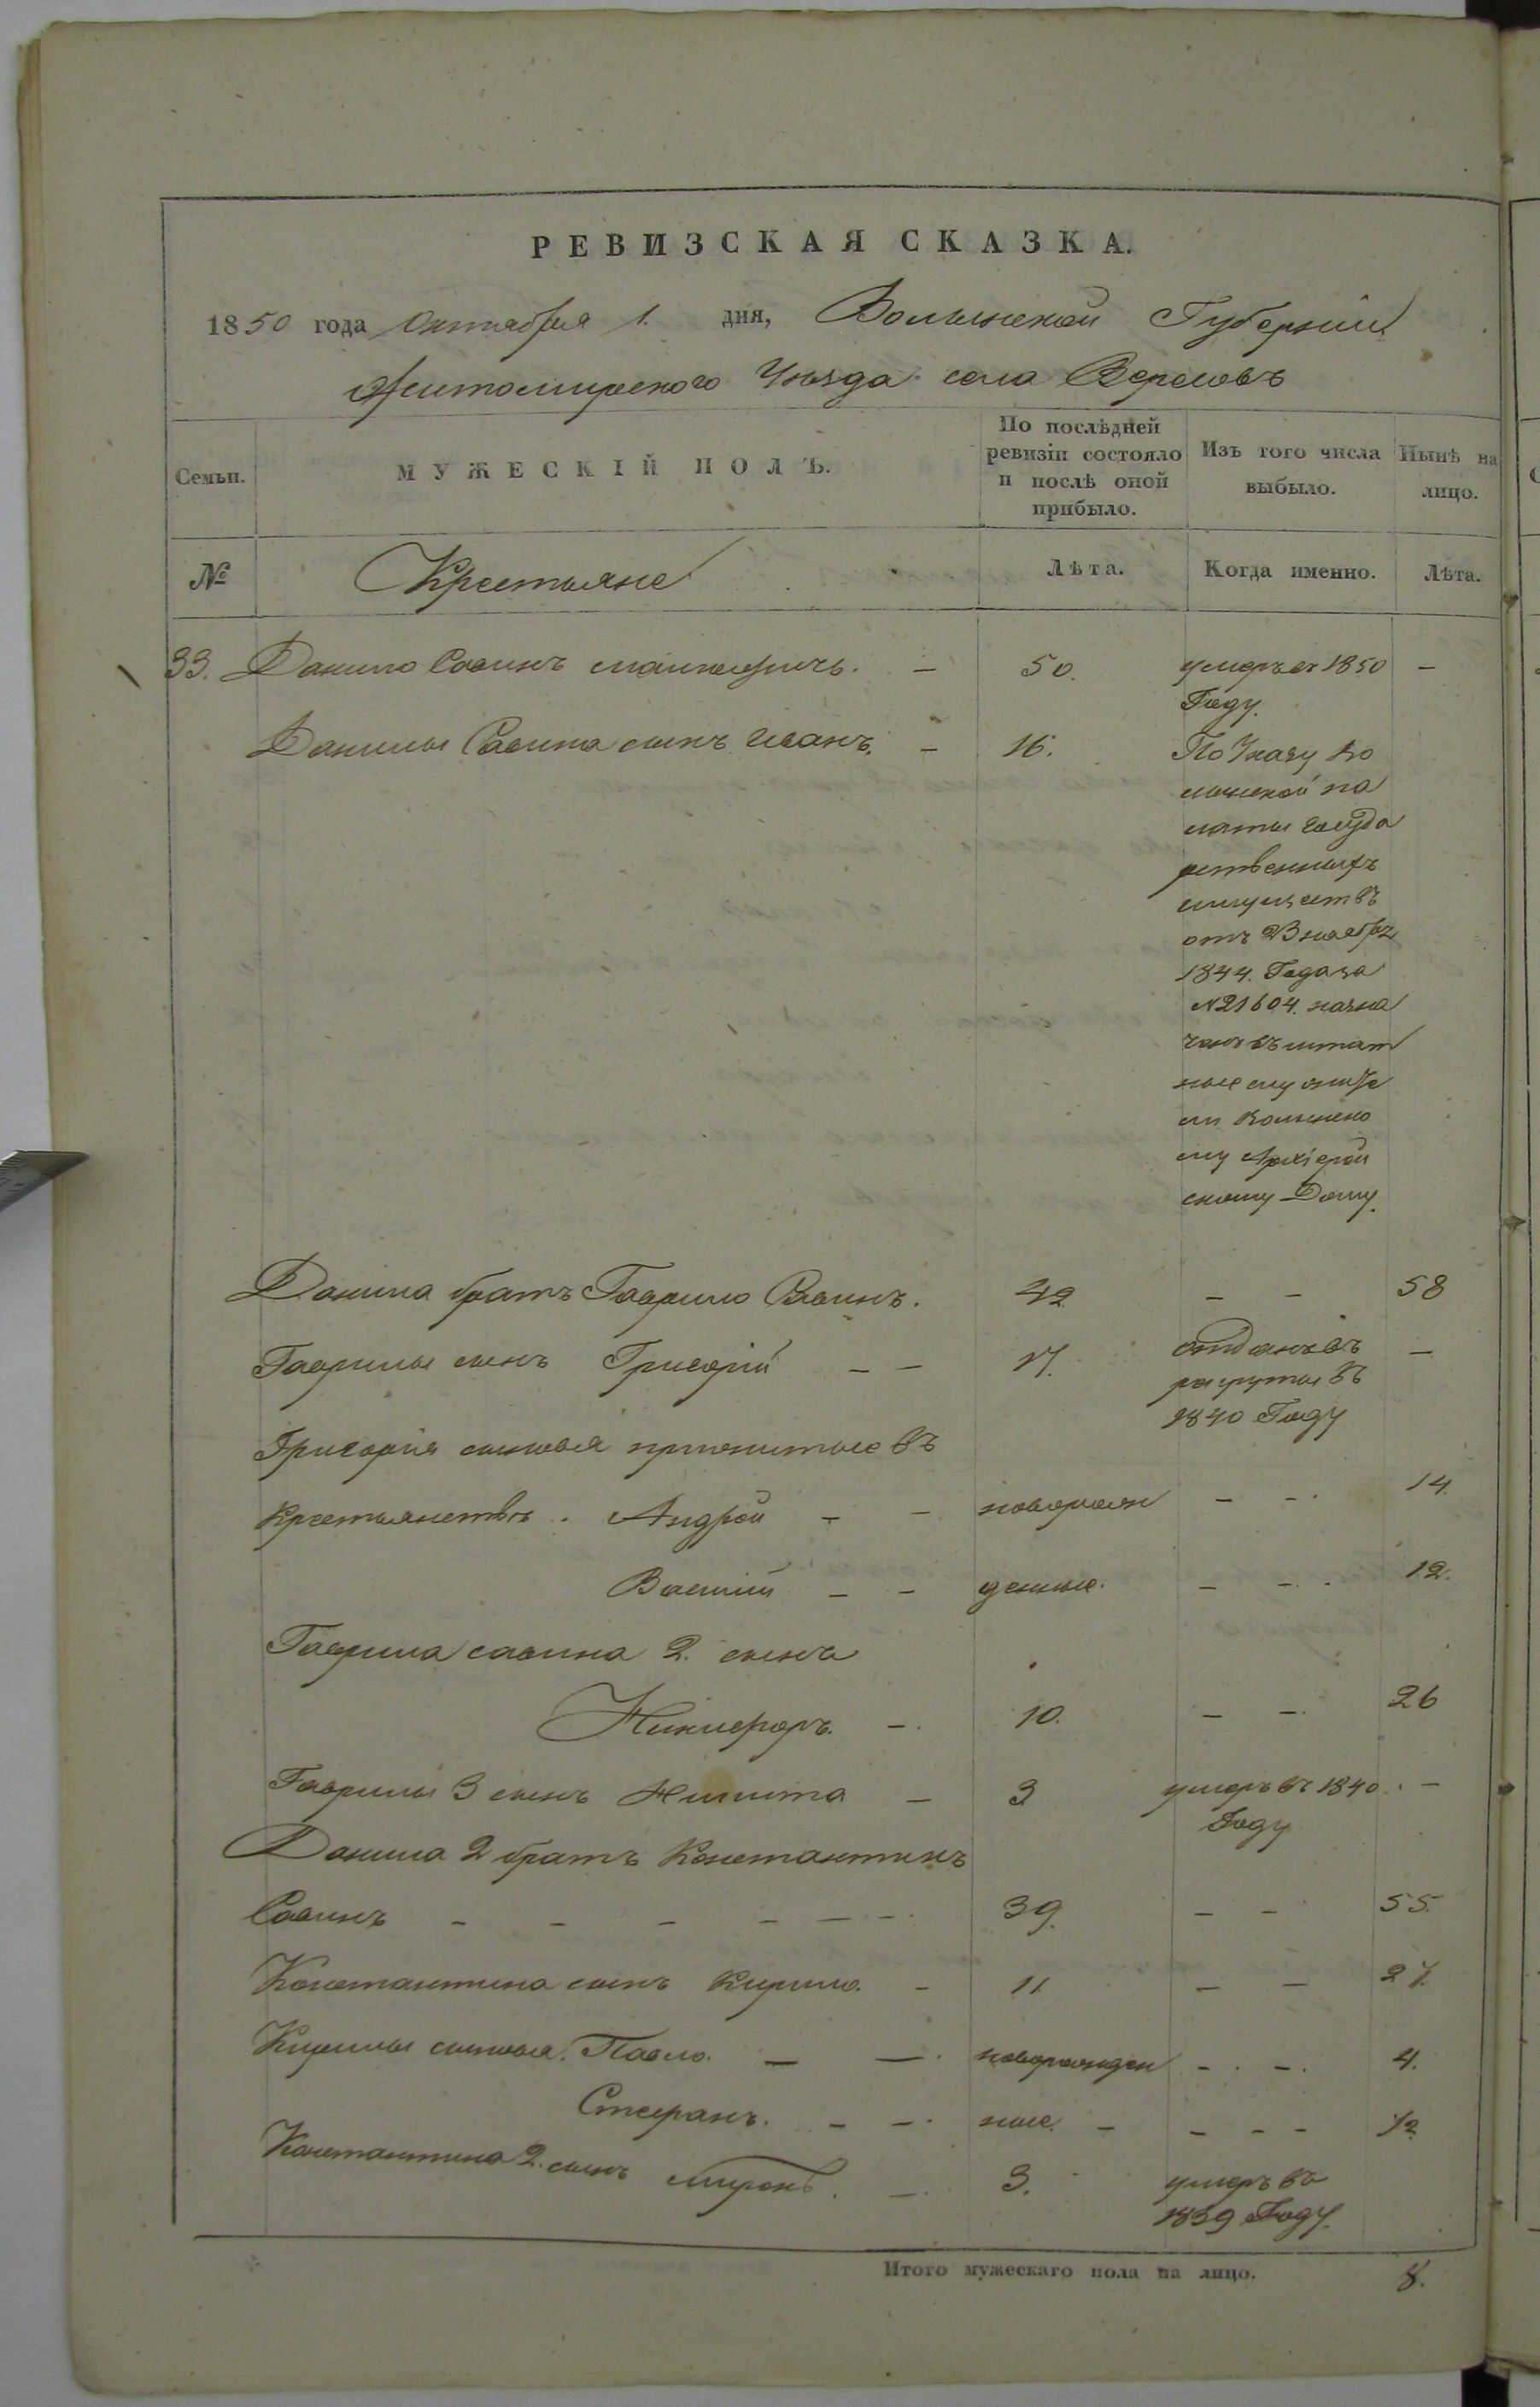 РЕВИЗСКАЯ СКАЗКА.
1850 года Октября 1. дня, Волынской Губернии
Житомирского Уѣзда села Вересовъ
Семьи.
МУЖЕСКІЙ ПОЛЪ.
По послѣдней ревизіи состояло и послѣ оной прибыло.
Изъ того числа выбыло.
Нынѣ на лицо.
№
Крестьяне
Лѣта.
Когда именно.
Лѣта.
33. Данило Савинъ — 50. умеръ въ 1850 —
Году.
Данилы Савина сынъ Иванъ. — 16. По Указу Во
лынской па
латы Госуда
рственныхъ
имуществъ
отъ 23 ноября
1844. Года за
№21604. назна
ченъ въ штат
ные служите
ли Волынско
му Архіерей
скому Дому.
Данила братъ Гаврило Савинъ. 42 — — 58
Гаврилы сынъ Григорій — — 17. отданъ въ —
рекруты въ
1840 Году
Григорія сыновья прижитые въ
крестьянствѣ. Андрей — — новорож — —. 14.
Василій — — денные. — —. 12.
Гаврила савина 2. сынъ
Никифоръ. —. 10. — —. 26
Гаврилы 3 сынъ Никита — 3 умеръ въ 1840. —
Году
Данила 2 братъ Константинъ
Савинъ — — — — — —. 39. — — 55.
Константина сынъ Кирило. — 11 — — 27.
Кирилы сыновья. Павло. — —. новорожден —. —. 4.
Стефанъ. — —. ные. — — — — 1/2
Константина 2. сынъ Миронъ. —. 3. умеръ въ
1839 Году.
Итого мужескаго пола на лицо. 8.